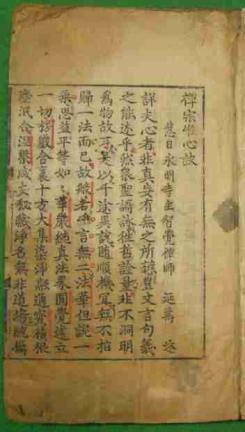 禪宗唯心訣
慧日永明寺主智覺禪師 延壽 述
詳夫心者非真妄有無之所辨豈文言句義
之能述乎然衆聖謌詠往哲詮量非不洞明
爲物故耳是以千途異說隨順機冝無不指
歸一法而已故般若唯言無二法華但說一
乘思益平等如〻華嚴純真法界圓覺建立
一切楞嚴含裹十方大集染淨融通寶積根
塵泯合涅槃咸安秘藏淨名無非道場統攝